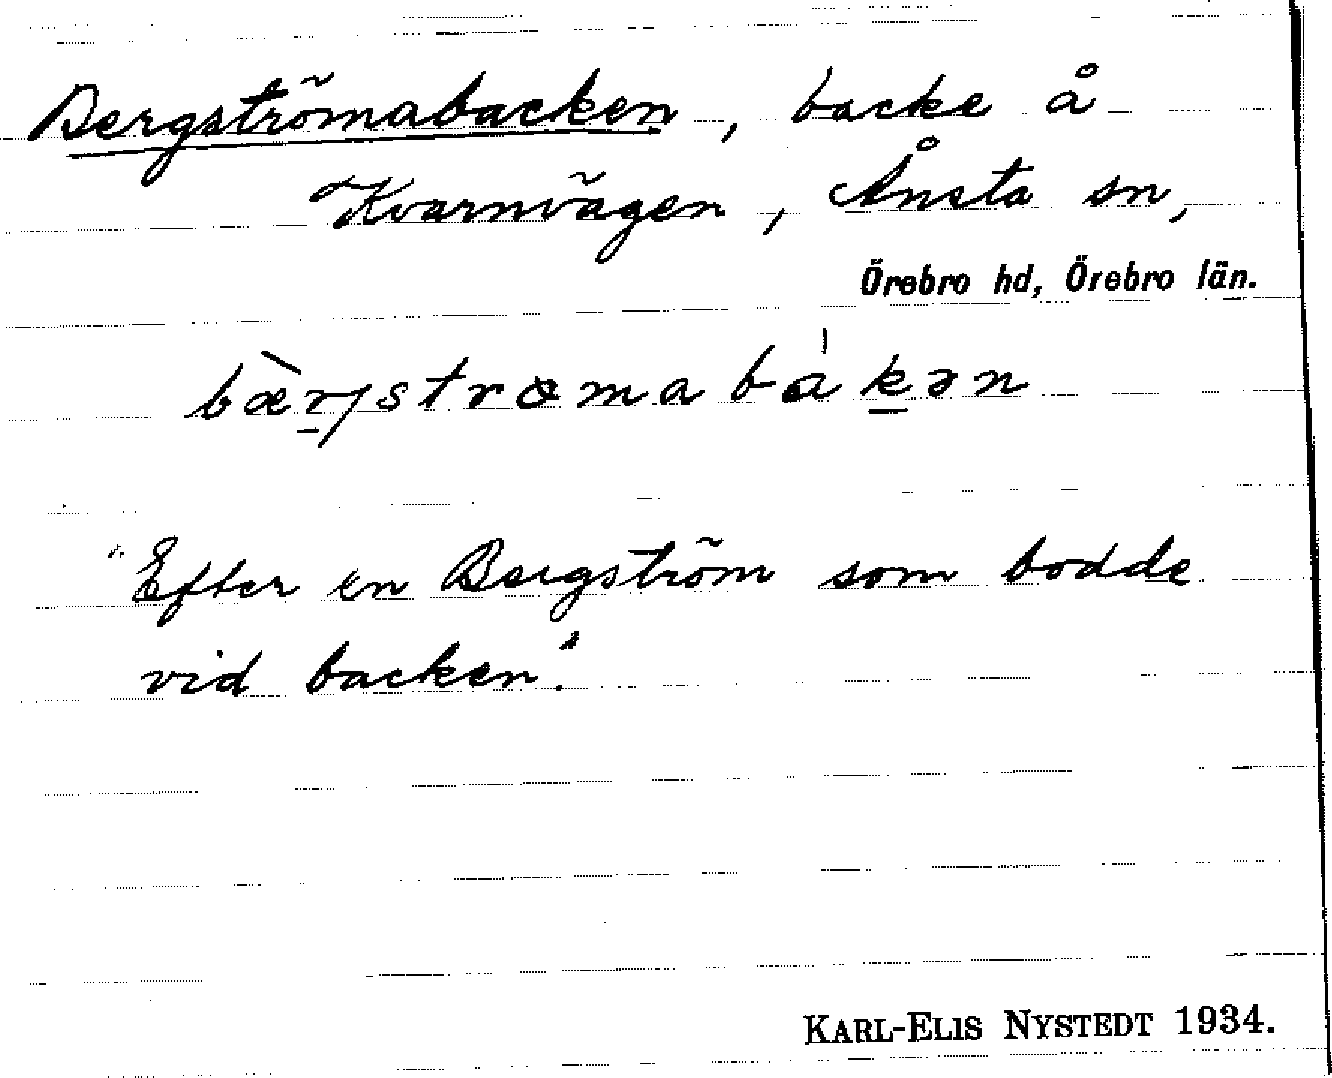 Bergströmabacken, backe å
Kvarnvägen, Ånsta sn,
Örebro hd, Örebro län.
bæ̀r̠jströmabá̀k̠ən
"Efter en Bergström som bodde
vid backen."
KARL-ELIS NYSTEDT 1934.